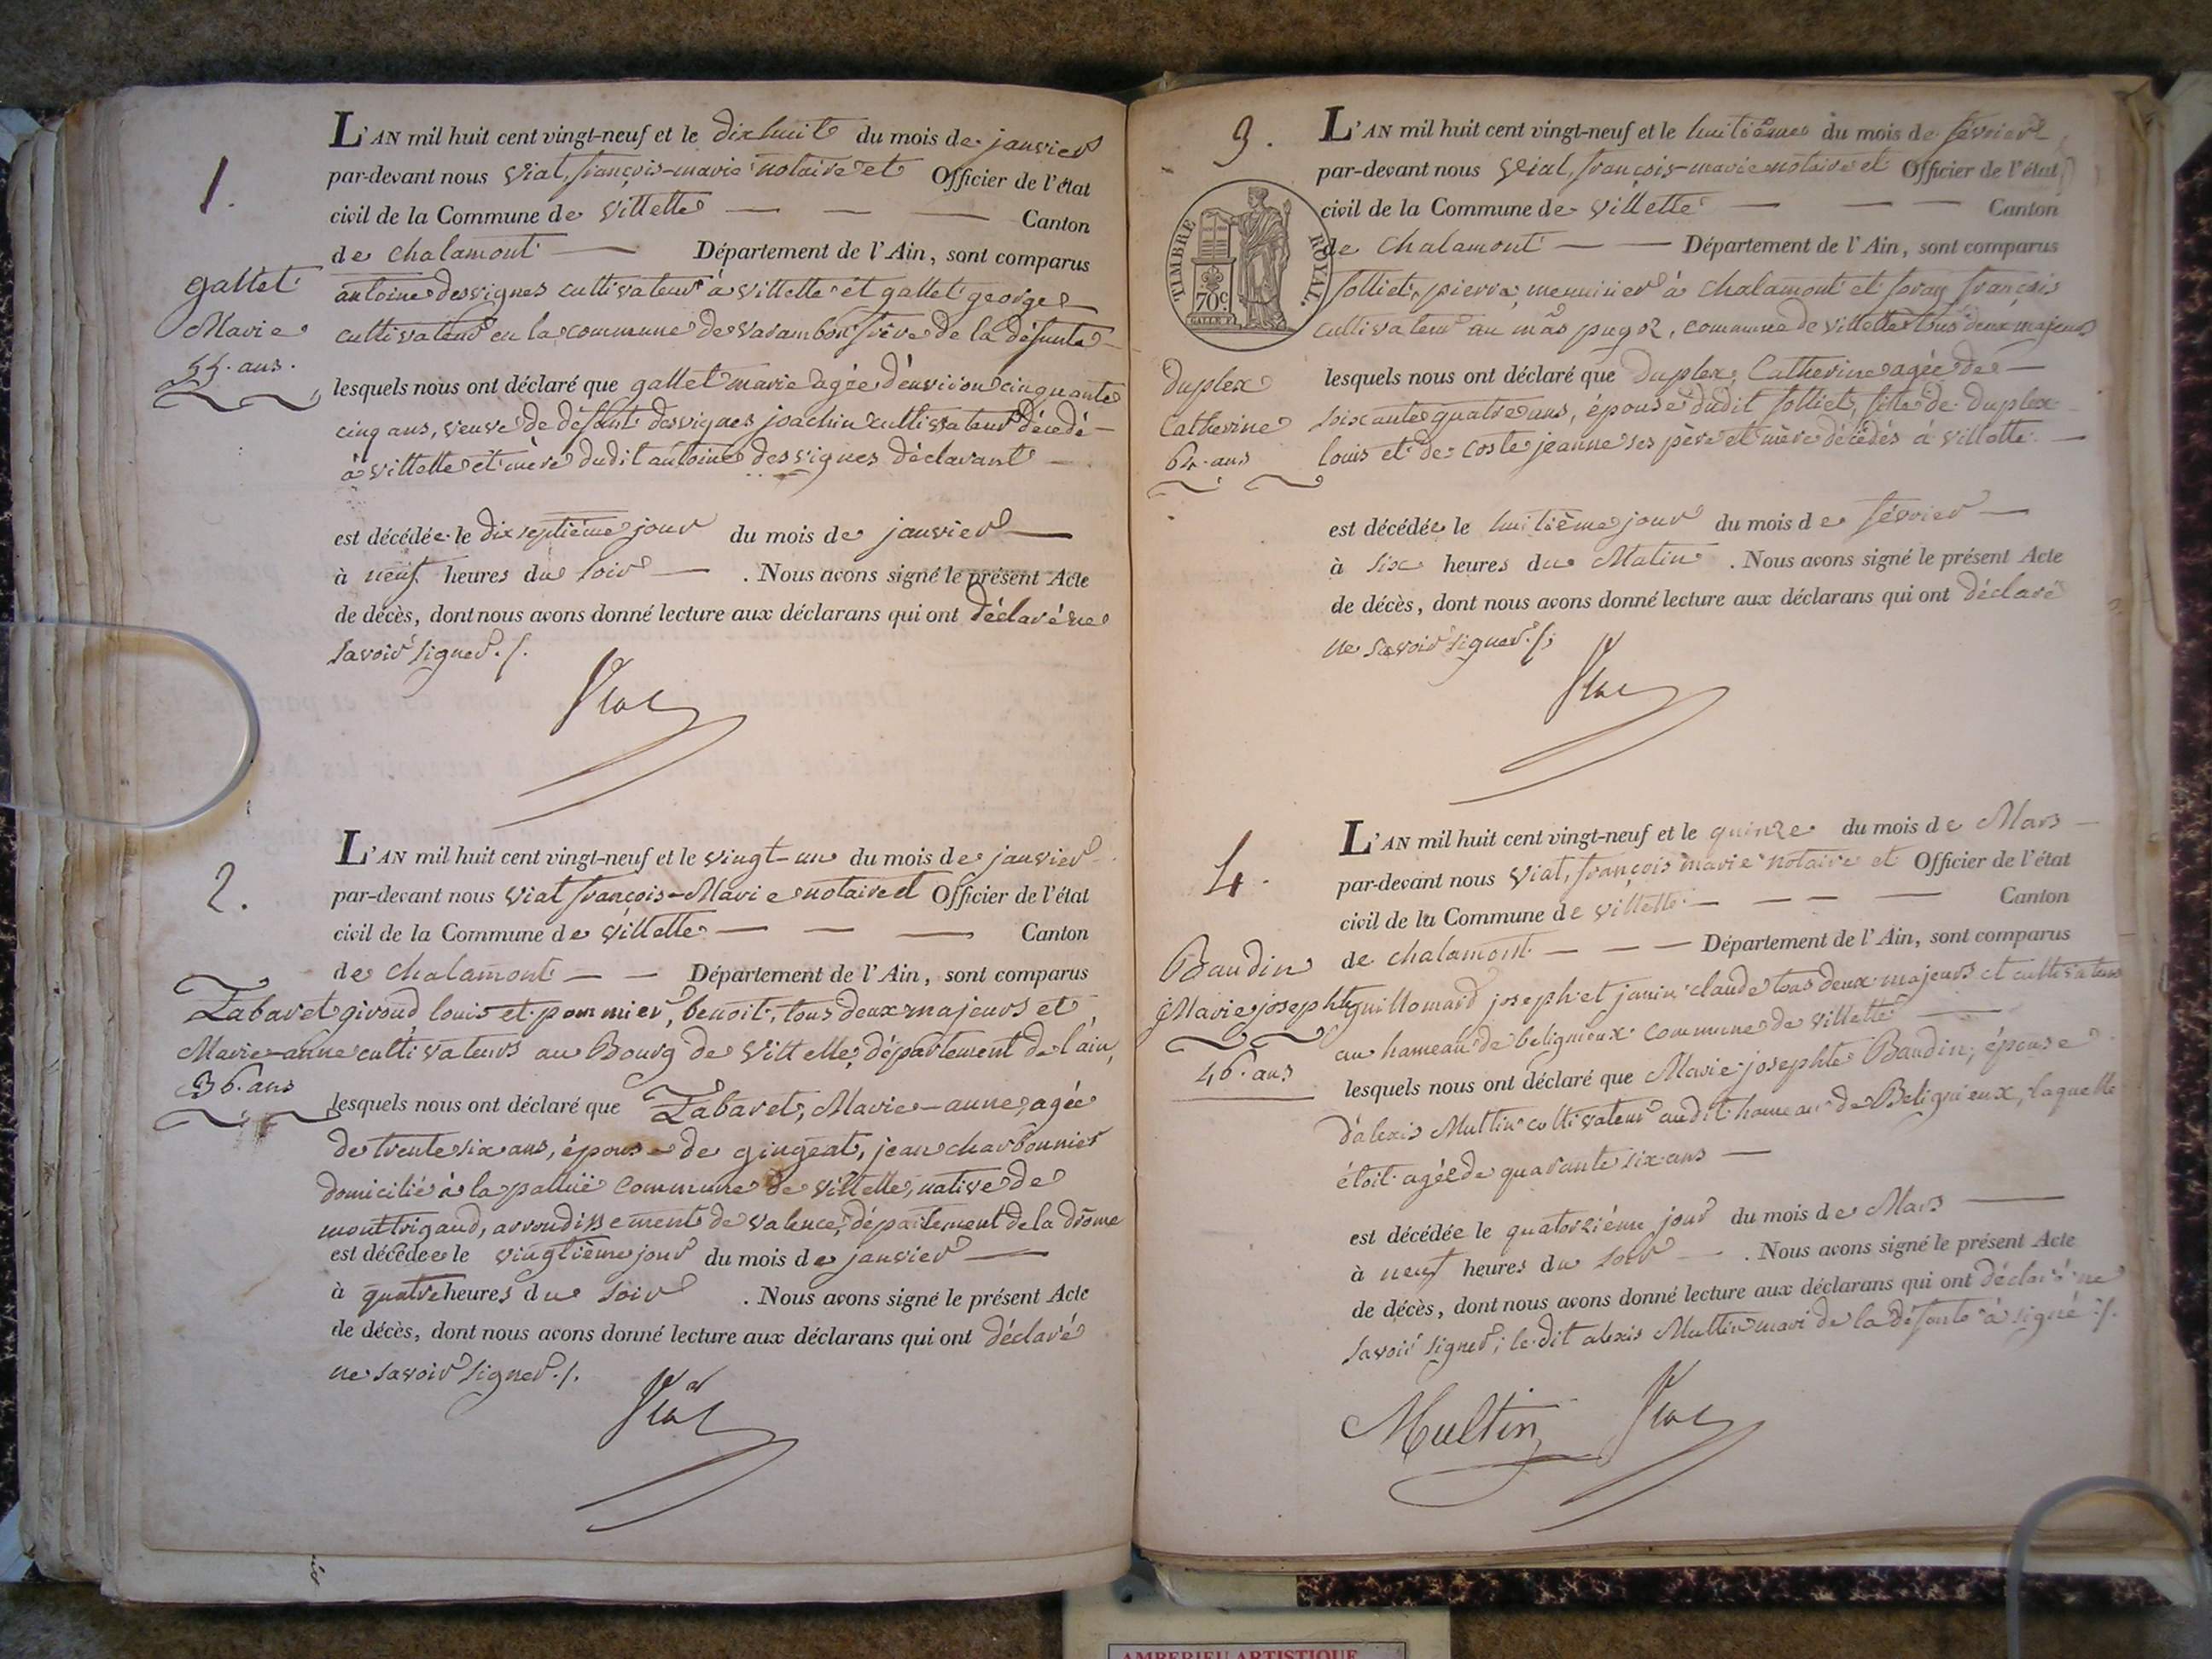 1.
gallet
Marie
55. ans.
L'AN mil huit cent vingt-neuf et le dixhuit du mois de janvier
par-devant nous Vial, françois-marie notaire et Officier de l'état
civil de la Commune de Villette — — — Canton
de chalamont — Département de l'Ain, sont comparus
antoine desvignes cultivateur à Villette et gallet george
cultivateur en la commune de Varambon frère de la défunte
lesquels nous ont déclaré que gallet marie agée d'environ cinquante
cinq ans, veuve de défunt desvignes joachin cultivateur décédé
à Villette et mère dudit antoine desvignes déclarant
est décédée le dix septième jour du mois de janvier
à neuf heures du soir — . Nous avons signé le présent Acte
de décès, dont nous avons donné lecture aux déclarans qui ont déclaré ne
savoir signer ./.
Vial
2.
Labaret
Marie-anne
36. ans
L'AN mil huit cent vingt-neuf et le vingt-un du mois de janvier
par-devant nous Vial françois-Marie notaire et Officier de l'état
civil de la Commune de Villette — — — Canton
de chalamont — — Département de l'Ain, sont comparus
giroud louis et pommier, benoit, tous deux majeurs et
cultivateurs au Bourg de Villette, département de l'ain,
lesquels nous ont déclaré que Labaret, Marie-anne, agée
de trente six ans, épouse de gingeat, jean charbonnier
domicilié à la palluë commune de Villette, native de
montrigaud, arrondissement de valence, département de la drôme
est décédée le vingtième jour du mois de janvier
à quatre heures du soir . Nous avons signé le présent Acte
de décès, dont nous avons donné lecture aux déclarans qui ont déclaré
ne savoir signer ./.
Vial
3.
TIMBRE ROYAL.
70c
duplex
Catherine
64. ans
L'AN mil huit cent vingt-neuf et le huitième du mois de février
par-devant nous Vial, françois-marie notaire et Officier de l'état
civil de la Commune de Villette — — — Canton
de Chalamont — — Département de l'Ain, sont comparus
folliet, pierre, menuisier à Chalamont et foray françois
cultivateur au mas pugoz, commune de Villette tous deux majeurs
lesquels nous ont déclaré que duplex, Catherine agée de
soixante quatre ans, épouse dudit folliet, fille de duplex
louis et de coste jeanne ses père et mère décédés à Villette
est décédée le huitième jour du mois de février
à six heures du Matin . Nous avons signé le présent Acte
de décès, dont nous avons donné lecture aux déclarans qui ont déclaré
ne savoir signer ./.
Vial
4.
Baudin
Marie josephte
46. ans
L'AN mil huit cent vingt-neuf et le quinze du mois de Mars
par-devant nous Vial, françois marie notaire et Officier de l'état
civil de la Commune de Villette — — — Canton
de chalamont — — Département de l'Ain, sont comparus
guillomard joseph et janin claude tous deux majeurs et cultivateurs
au hameau de belignieux commune de Villette
lesquels nous ont déclaré que Marie-josephte Baudin, épouse
d'alexis Multin cultivateur audit hameau de Belignieux, laquelle
étoit agée de quarante six ans
est décédée le quatorzième jour du mois de Mars
à neuf heures du soir — . Nous avons signé le présent Acte
de décès, dont nous avons donné lecture aux déclarans qui ont déclaré ne
savoir signer; le dit alexis Multin mari de la défunte à signé ./.
Multin Vial
AMBERIEU ARTISTIQUE